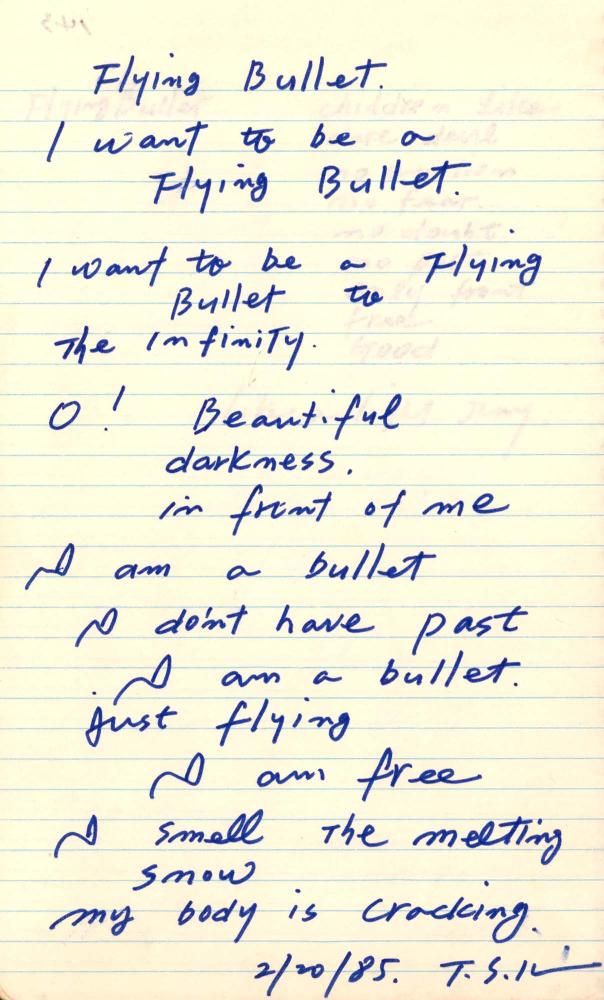 Flying Bullet.
I want to be a
Flying Bullet.
I want to be a Flying
Bullet to
The Infinity.
O! Beautiful
darkness.
in front of me
I am a bullet
I don't have past
I am a bullet.
Just flying
I am free
I smell the melting
snow
my body is cracking.
2/20/85.